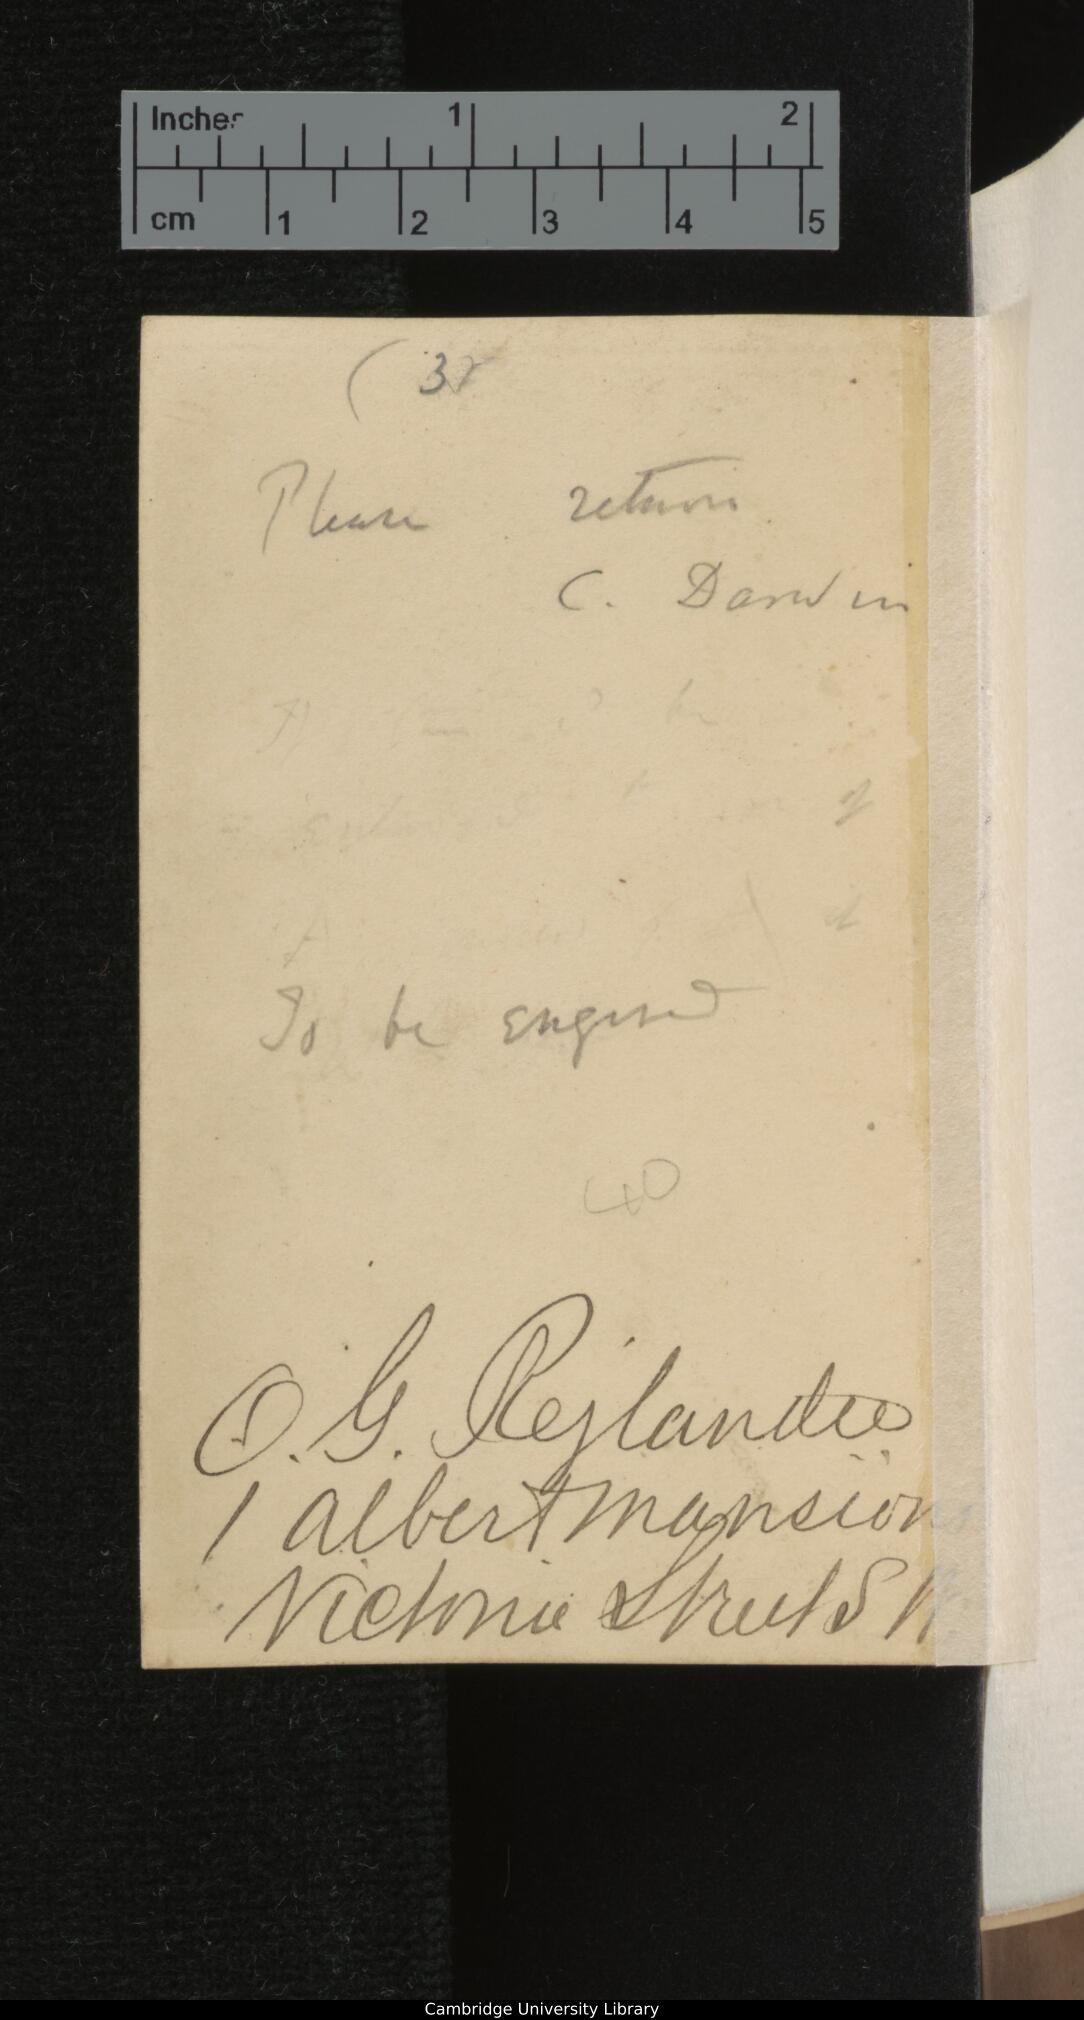 Inches 1 2
cm 1 2 3 4 5
Please return
C. Darwin
of
To be engraved
40
O. G. Rejlander
1 Albert Mansions
Victoria Street S W
Cambridge University Library